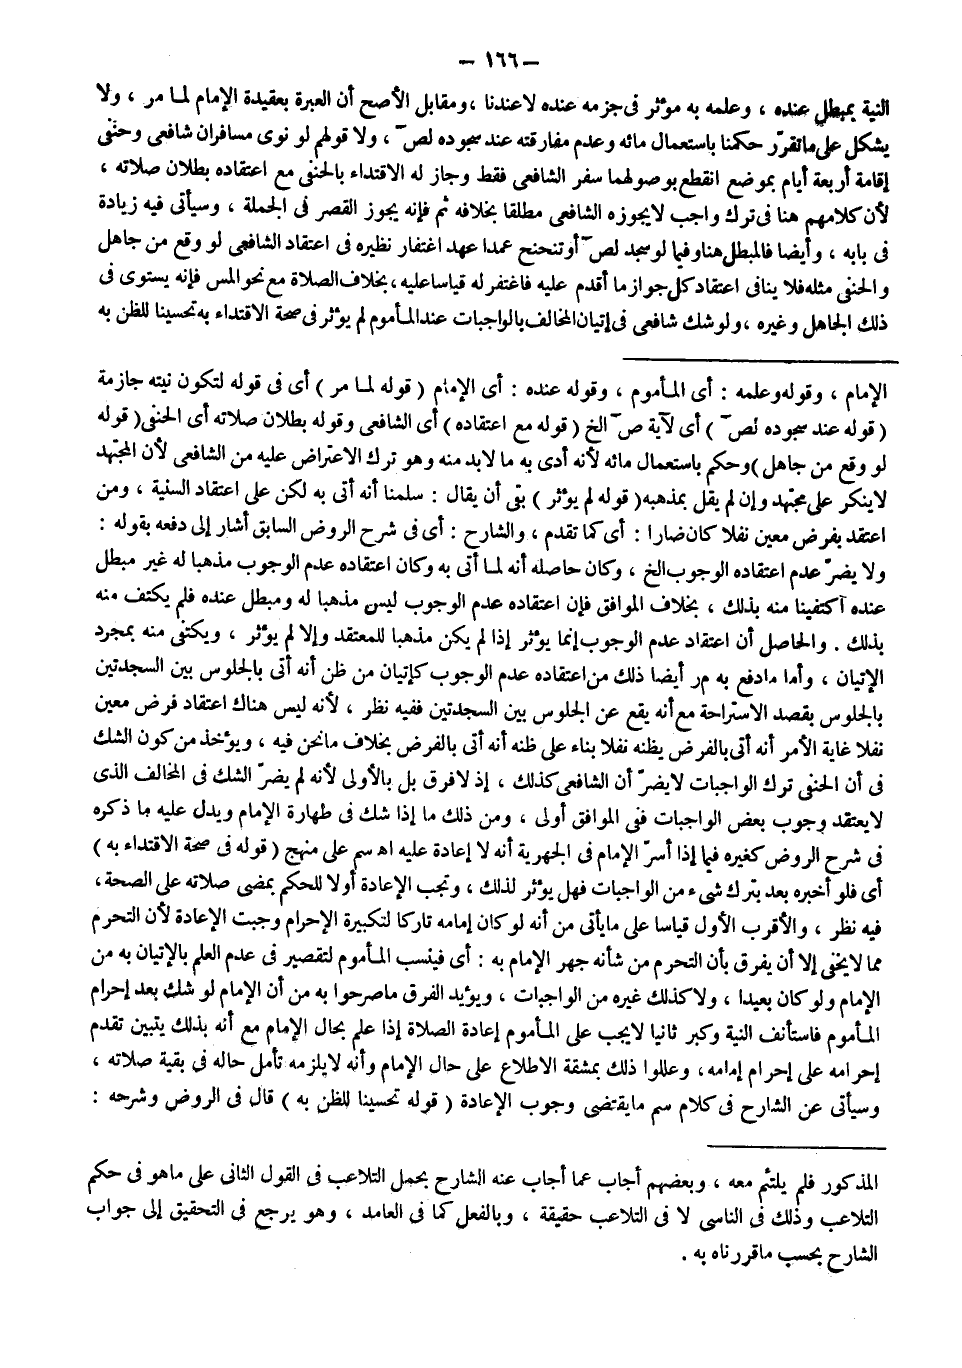 – ١٦٦ –
النية بمبطل عنده ، وعلمه به مؤثر فى جزمه عنده لاعندنا ، ومقابل الأصح أن العبرة بعقيدة الإمام لما مر ، ولا
يشكل على ماتقرّر حكمنا باستعمال مائه وعدم مفارقته عند سجوده لص ، ولا قولهم لو نوى مسافران شافعى وحنفى
إقامة أربعة أيام بموضع انقطع بوصولهما سفر الشافعى فقط وجاز له الاقتداء بالحنفى مع اعتقاده بطلان صلاته ،
لأن كلامهم هنا فى ترك واجب لايجوزه الشافعى مطلقا بخلافه ثم فإنه يجوز القصر فى الجملة ، وسيأتى فيه زيادة
فى بابه ، وأيضا فالمبطل هنا وفيما لو سجد لص أو تنحنح عمدا عهد اغتفار نظيره فى اعتقاد الشافعى لو وقع من جاهل
والحنفى مثله فلا ينافى اعتقاد كل جواز ما أقدم عليه فاغتفر له قياسا عليه ، بخلاف الصلاة مع نحو المس فإنه يستوى فى
ذلك الجاهل وغيره ، ولو شك شافعى فى إتيان المخالف بالواجبات عند المأموم لم يؤثر فى صحة الاقتداء به تحسينا للظن به
الإمام ، وقوله وعلمه : أى المأموم ، وقوله عنده : أى الإمام ( قوله لما مر ) أى فى قوله لتكون نيته جازمة
( قوله عند سجوده لص ) أى لآية ص الخ ( قوله مع اعتقاده ) أى الشافعى وقوله بطلان صلاته أى الحنفى ( قوله
لو وقع من جاهل ) وحكم باستعمال مائه لأنه أدى به ما لابد منه وهو ترك الاعتراض عليه من الشافعى لأن المجتهد
لاينكر على مجتهد وإن لم يقل بمذهبه ( قوله لم يؤثر ) بقى أن يقال : سلمنا أنه أتى به لكن على اعتقاد السنية ، ومن
اعتقد بفرض معين نفلا كان ضارا : أى كما تقدم ، والشارح : أى فى شرح الروض السابق أشار إلى دفعه بقوله :
ولا يضرّ عدم اعتقاده الوجوب الخ ، وكان حاصله أنه لما أتى به وكان اعتقاده عدم الوجوب مذهبا له غير مبطل
عنده اكتفينا منه بذلك ، بخلاف الموافق فإن اعتقاده عدم الوجوب ليس مذهبا له ومبطل عنده فلم يكتف منه
بذلك . والحاصل أن اعتقاد عدم الوجوب إنما يؤثر إذا لم يكن مذهبا للمعتقد وإلا لم يؤثر ، ويكتفى منه بمجرد
الإتيان ، وأما مادفع به م ر أيضا ذلك من اعتقاده عدم الوجوب كإتيان من ظن أنه أتى بالجلوس بين السجدتين
بالجلوس بقصد الاستراحة مع أنه يقع عن الجلوس بين السجدتين ففيه نظر ، لأنه ليس هناك اعتقاد فرض معين
نفلا غاية الأمر أنه أتى بالفرض يظنه نفلا بناء على ظنه أنه أتى بالفرض بخلاف مانحن فيه ، ويؤخذ من كون الشك
فى أن الحنفى ترك الواجبات لايضرّ أن الشافعى كذلك ، إذ لافرق بل بالأولى لأنه لم يضرّ الشك فى المخالف الذى
لايعتقد وجوب بعض الواجبات ففى الموافق أولى ، ومن ذلك ما إذا شك فى طهارة الإمام ويدل عليه ما ذكره
فى شرح الروض كغيره فيما إذا أسرّ الإمام فى الجهرية أنه لا إعادة عليه اه سم على منهج ( قوله فى صحة الاقتداء به )
أى فلو أخبره بعد بترك شىء من الواجبات فهل يؤثر لذلك ، وتجب الإعادة أولا للحكم بمضى صلاته على الصحة ،
فيه نظر ، والأقرب الأول قياسا على مايأتى من أنه لو كان إمامه تاركا لتكبيرة الإحرام وجبت الإعادة لأن التحرم
مما لايخفى إلا أن يفرق بأن التحرم من شأنه جهر الإمام به : أى فينسب المأموم لتقصير فى عدم العلم بالإتيان به من
الإمام ولو كان بعيدا ، ولا كذلك غيره من الواجبات ، ويؤيد الفرق ماصرحوا به من أن الإمام لو شك بعد إحرام
المأموم فاستأنف النية وكبر ثانيا لايجب على المأموم إعادة الصلاة إذا علم بحال الإمام مع أنه بذلك يتبين تقدم
إحرامه على إحرام إمامه ، وعللوا ذلك بمشقة الاطلاع على حال الإمام وأنه لايلزمه تأمل حاله فى بقية صلاته ،
وسيأتى عن الشارح فى كلام سم مايقتضى وجوب الإعادة ( قوله تحسينا للظن به ) قال فى الروض وشرحه :
المذكور فلم يلتئم معه ، وبعضهم أجاب عما أجاب عنه الشارح بحمل التلاعب فى القول الثانى على ماهو فى حكم
التلاعب وذلك فى الناسى لا فى التلاعب حقيقة ، وبالفعل كما فى العامد ، وهو يرجع فى التحقيق إلى جواب
الشارح بحسب ماقررناه به .